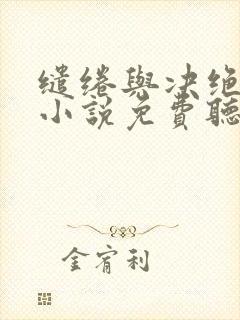 缱绻與决绝
小説免費聽
金宥利